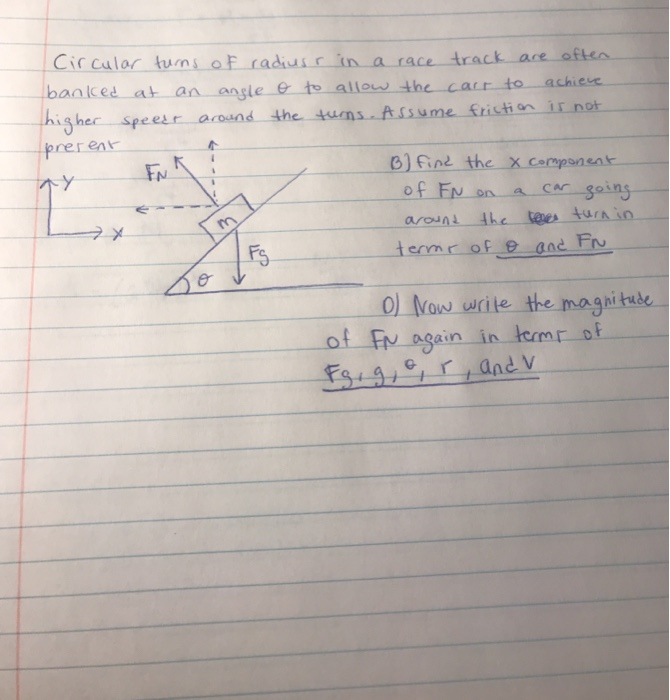 Circular turns of radius r in a race track are often
banked at an angle θ to allow the carr to achieve
higher speedr around the turns. Assume friction is not
present
Y
X
FN
m
Fg
θ
B) find the x component
of FN on a car going
around the turn in
terms of θ and FN
D) Now write the magnitude
of FN again in terms of
Fg, g, θ, r, and V